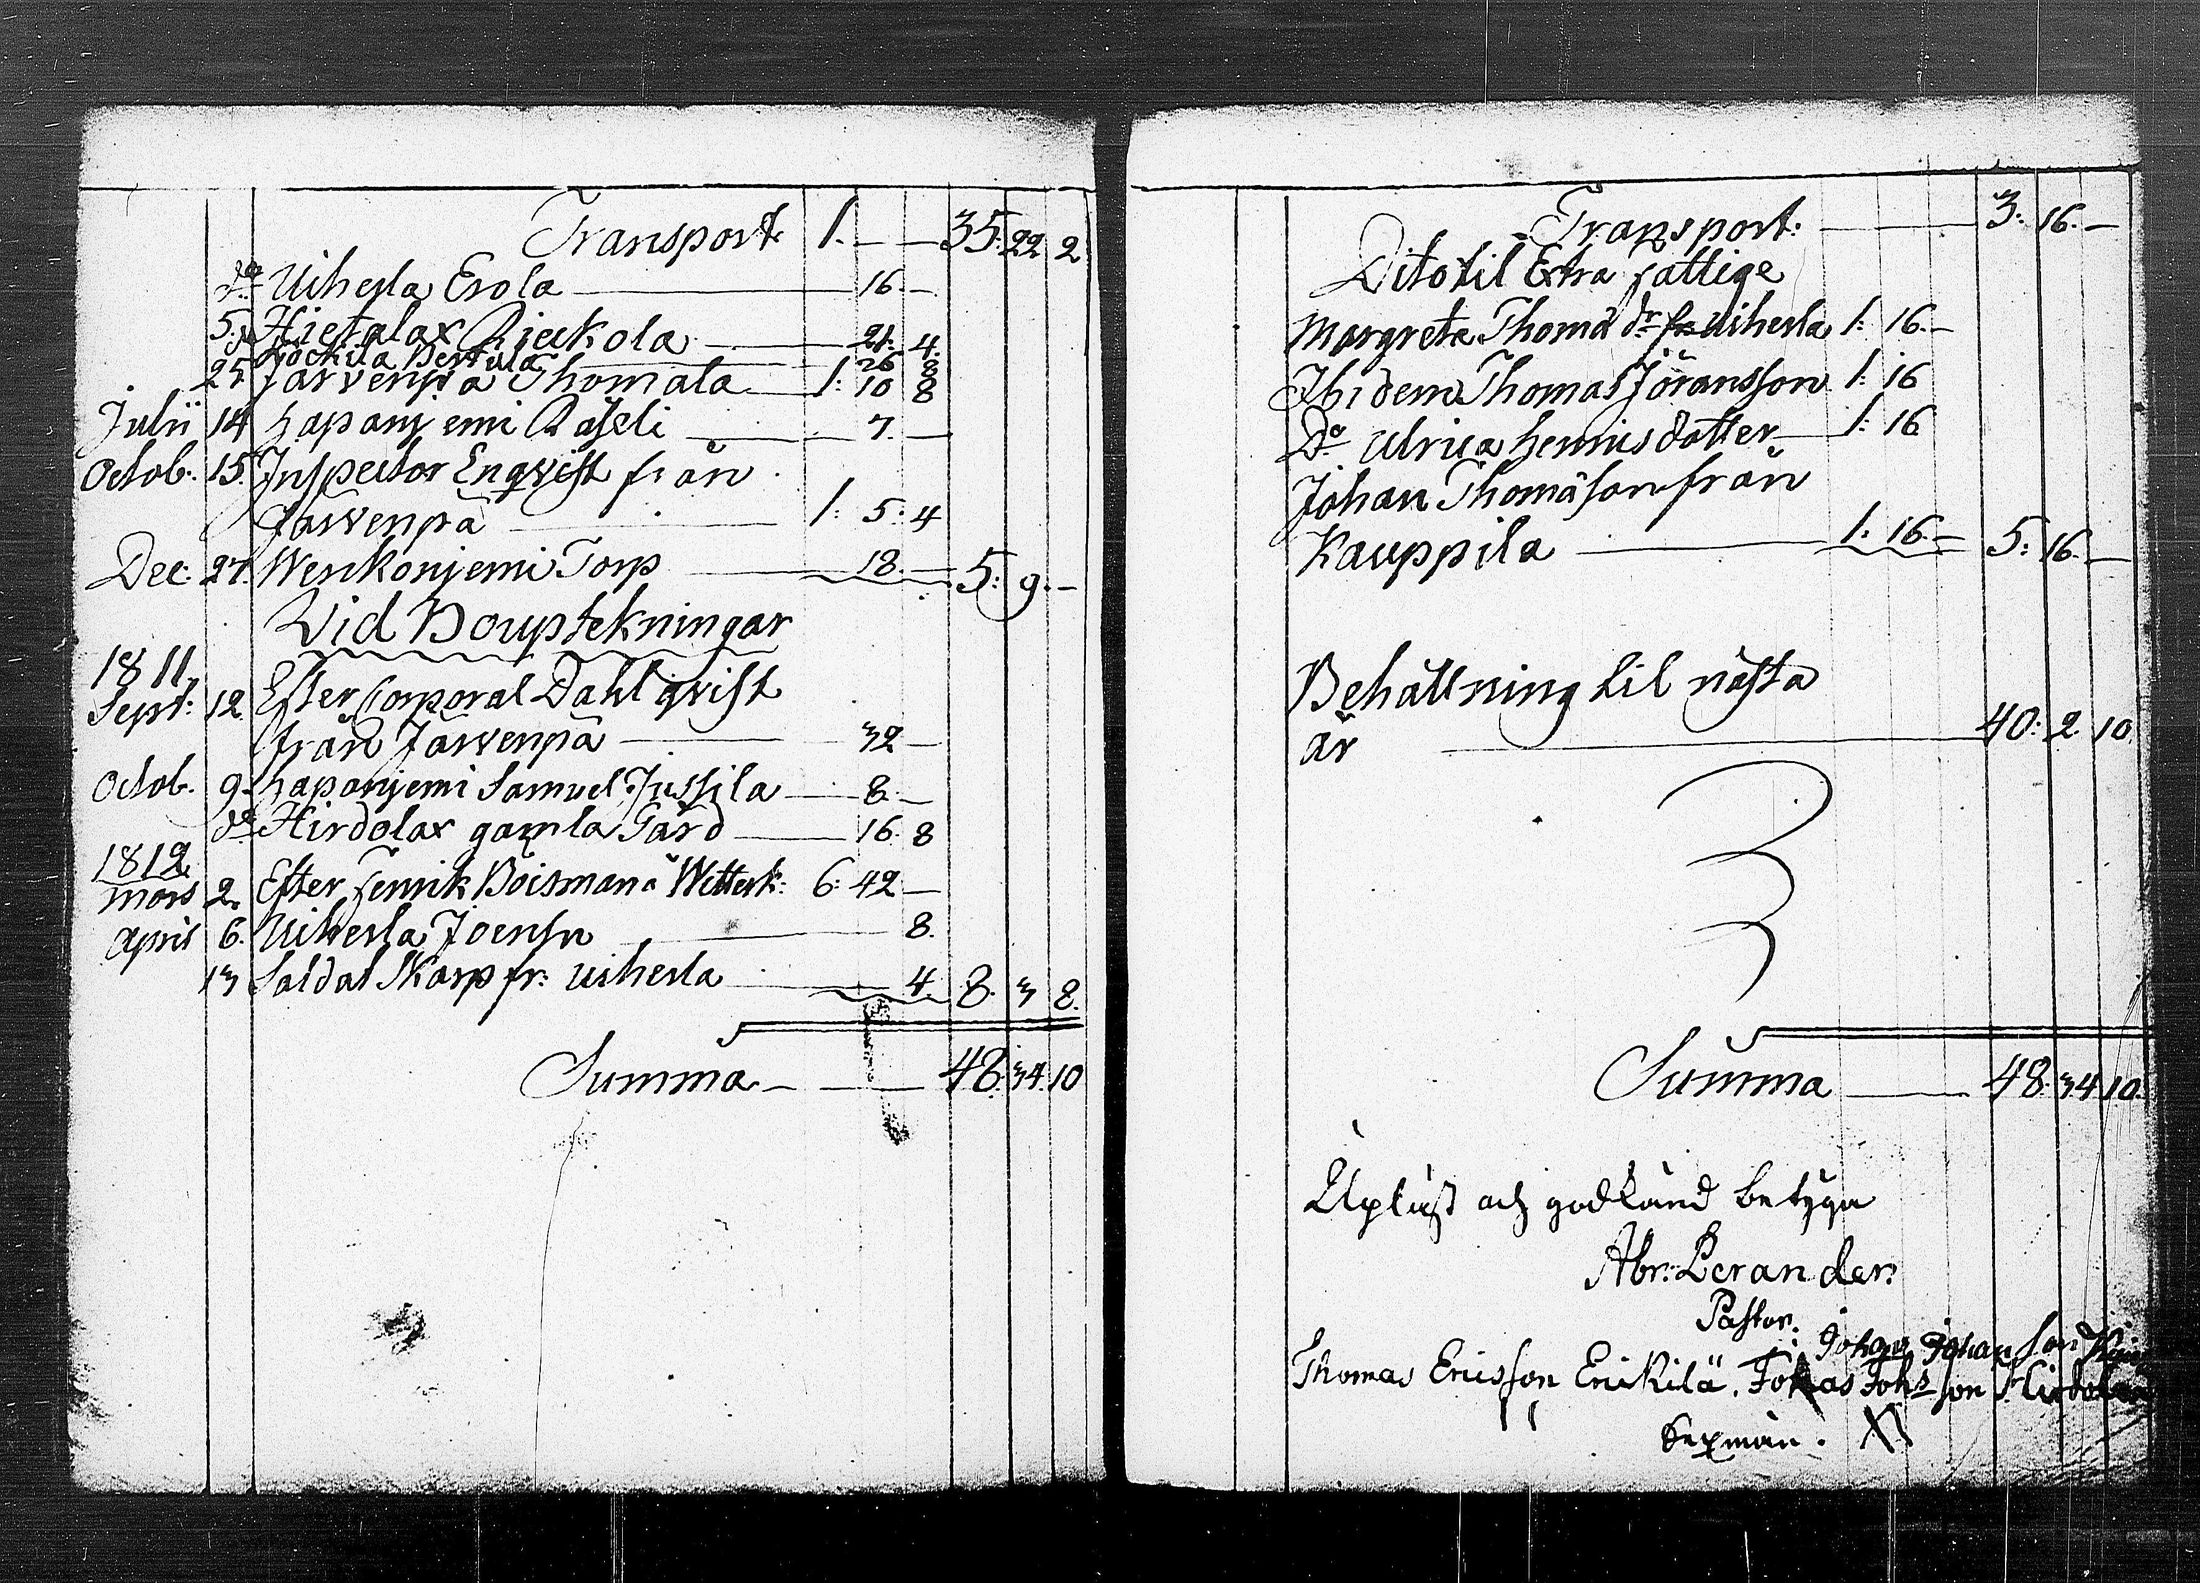 Transport 1. — — 35. 22 2
do Uiherla Erola — 16. —
5. Hietalax Rieckola — 21. 4.
do Bertula — 26 8
25. Järvenpä Thomala — 1: 10 8
Julii 14 Hapanjemi — 7. —
Octob. 15. Inspector Enqvist från
Jarvenpä — 1: 5: 4
Dec: 27. Torp — 18. — 5: 9. —
Vid Bouptekningar
1811.
Sept: 12. Efter Corporal Dahlqvist
från Järvenpä — 32 —
Octob. 9. Hapanjemi Samuel Jussila — 8. —
do Hirdolax gamla Gård — 16. 8
1812
Mars 2. Efter Fenrik Boisman å Wetterk: 6: 42 —
April 6. Uiherla — 8.
13 Saldat Skarp fr: Uiherla — 4. 8. 3 8.
Summa — 48. 34. 10
Transport. — 3. 16. —
Dito til Extra fattige
Margreta Thomä dr Uiherla 1: 16. —
Ibidem Thomas Jöransson 1: 16
Do Ulrica Henricsdotter — 1: 16
Johan Thomäson från
Kauppila — 1: 16. — 5: 16. —
Behållning til nästa
år — 40: 2. 10.
Summa — 48. 34 10.
Upläst och godkänd betyga
Abr: Perander.
Pastor.
Johan Johansson
Thomas Ericsson Erikilä. Tobias Johsson
Sexmän.